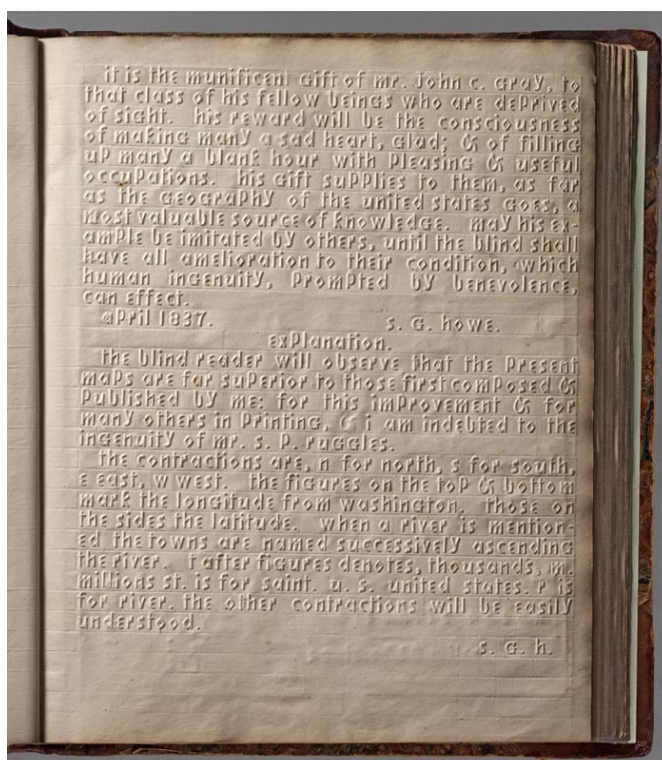 it is the munificent gift of mr. john c. gray, to
that class of his fellow beings who are deprived
of sight. his reward will be the consciousness
of making many a sad heart, glad; & of filling
up many a blank hour with pleasing & useful
occupations. his gift supplies to them, as far
as the geography of the united states goes, a
most valuable source of knowledge. may his ex-
ample be imitated by others, until the blind shall
have all amelioration to their condition, which
human ingenuity, prompted by benevolence,
can effect.
april 1837. s. g. howe.
explanation.
the blind reader will observe that the present
maps are far superior to those first composed &
published by me: for this improvement & for
many others in printing, & i am indebted to the
ingenuity of mr. s. p. ruggles.
the contractions are, n for north, s for south,
e east, w west. the figures on the top & bottom
mark the longitude from washington, those on
the sides the latitude. when a river is mention-
ed the towns are named successively ascending
the river. t after figures denotes, thousands, m.
millions st. is for saint. u. s. united states. r is
for river. the other contractions will be easily
understood.
s. g. h.